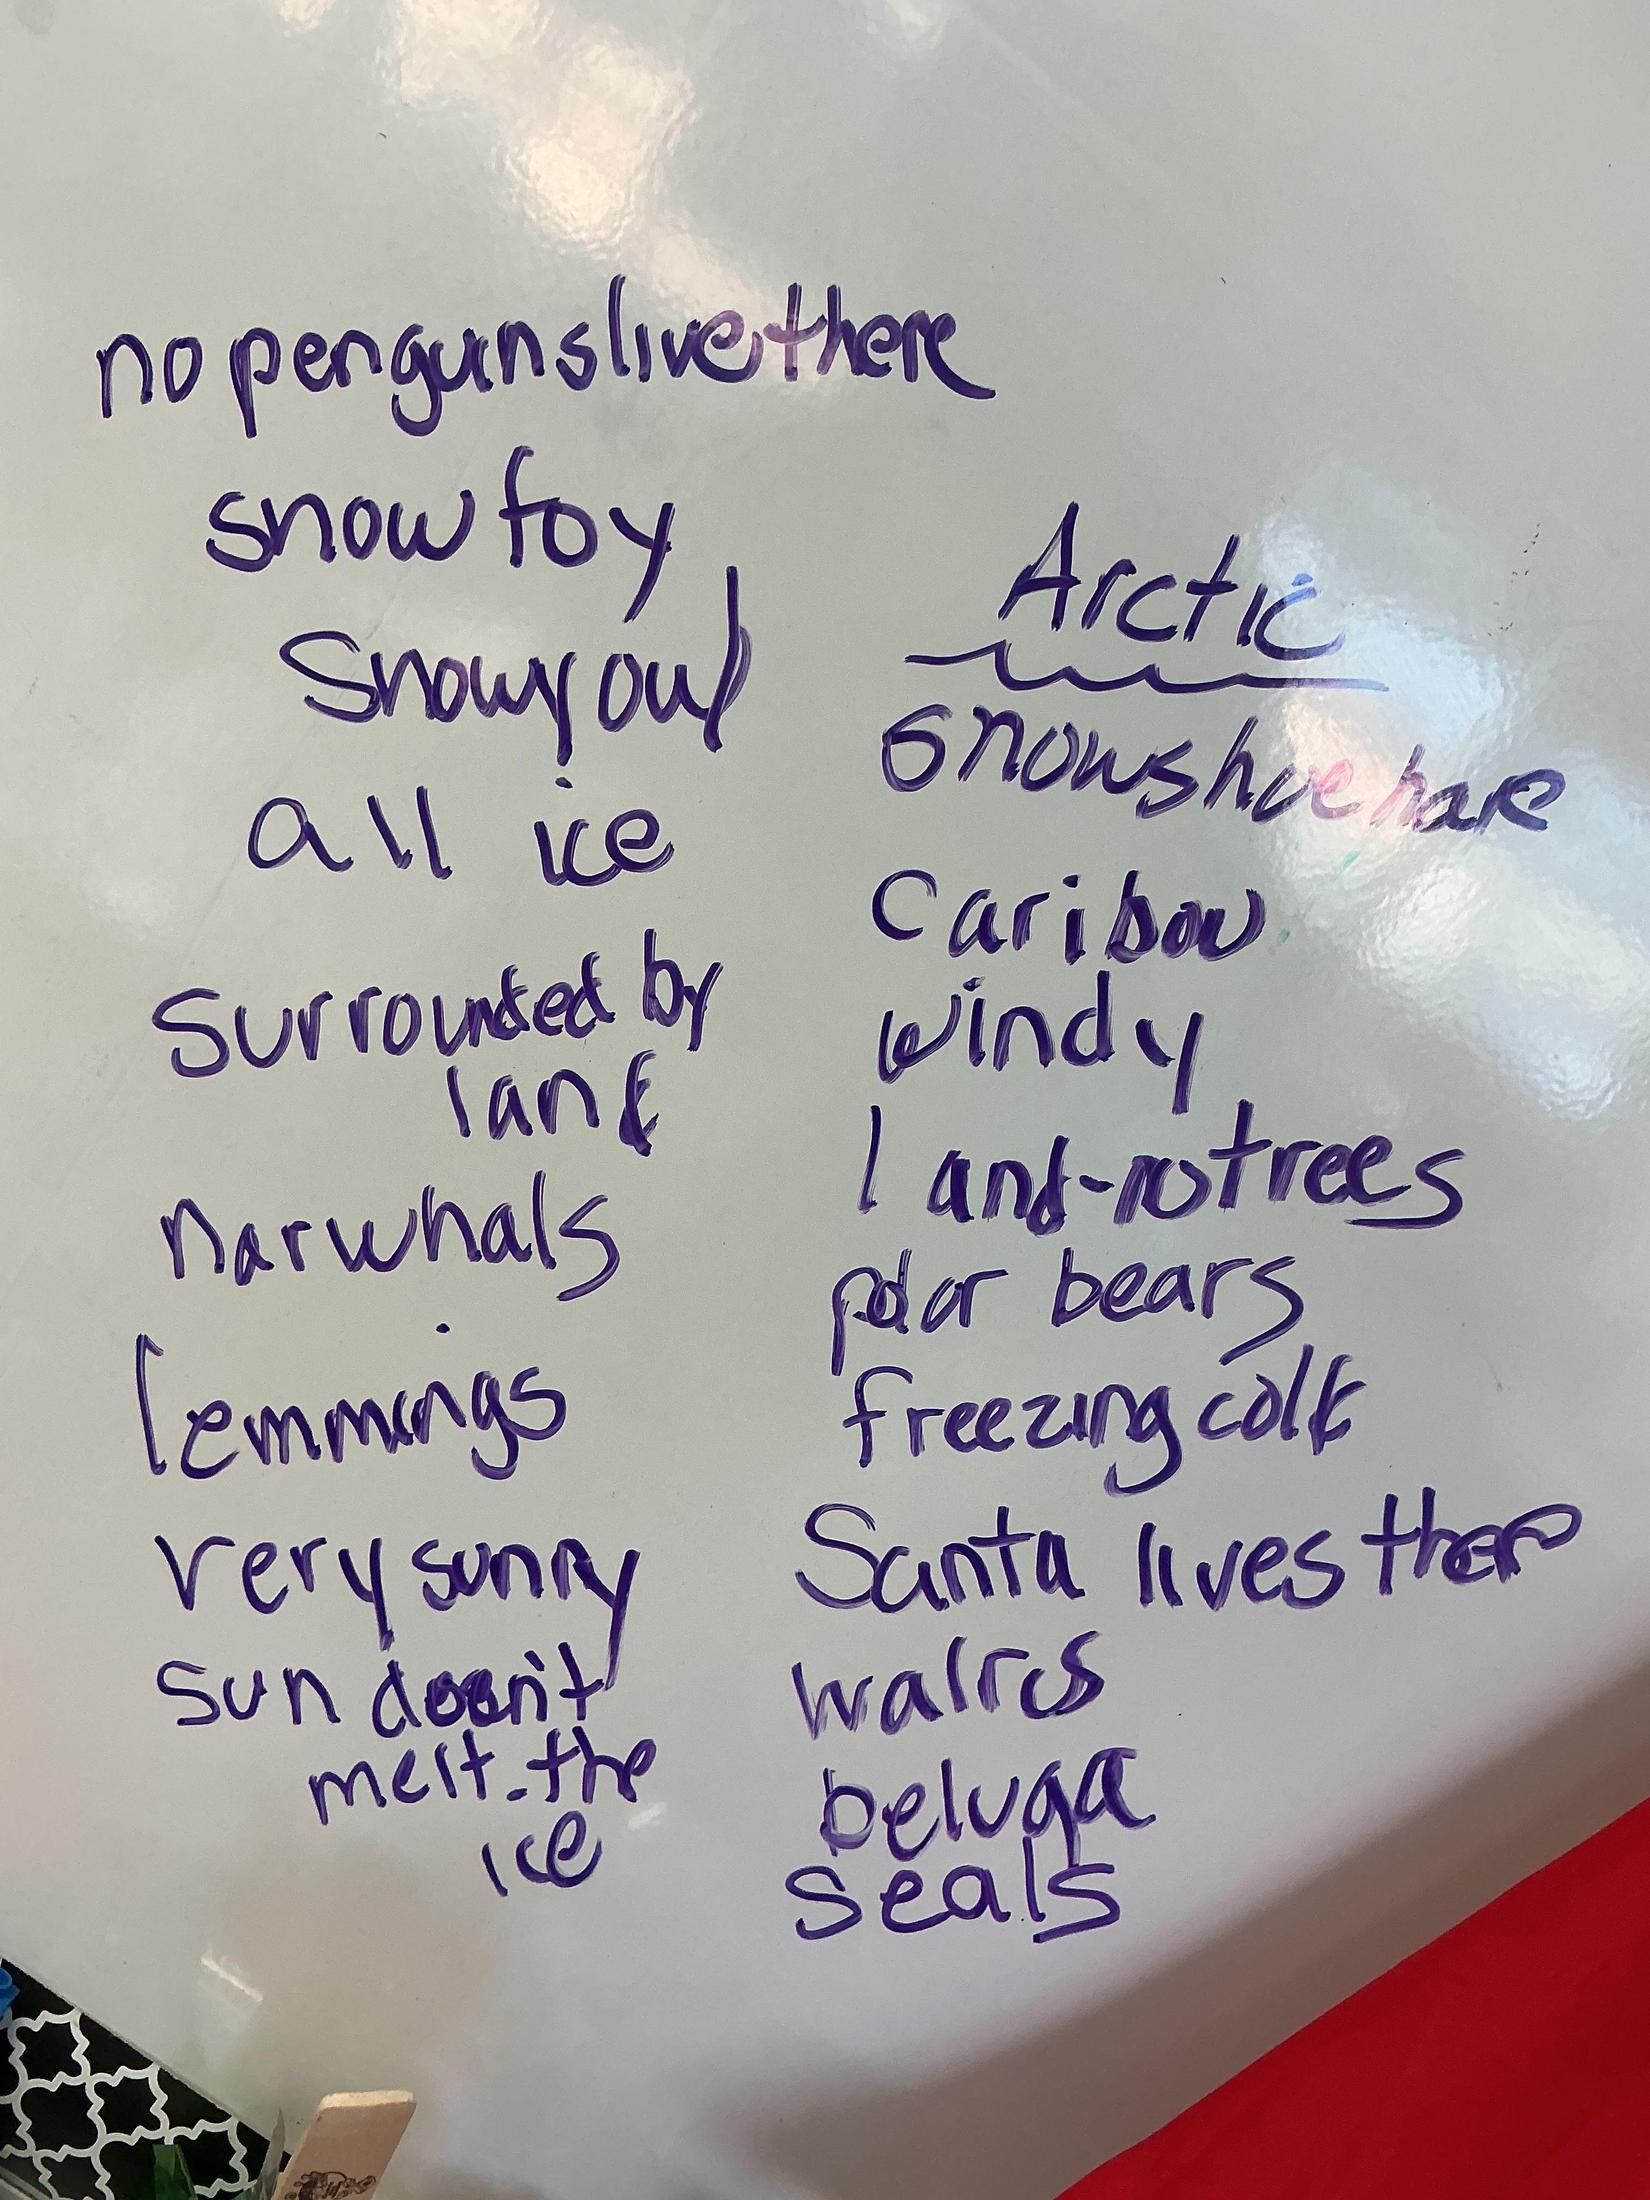 no penguins live there
snow foy
Snowy owl
all ice
surrounded by
land
narwhals
lemmings
very sunny
sun doesn't
melt the
ice
Arctic
snowshoe hare
caribou
windy
land-no trees
polar bears
freezing cold
Santa lives there
walrus
beluga
seals